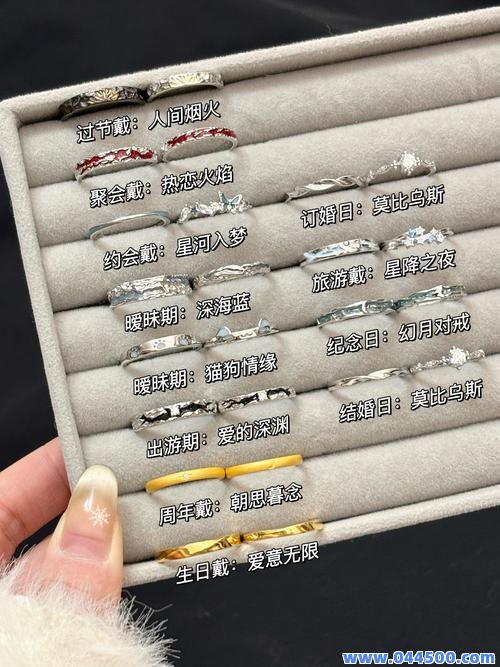 过节戴：人间烟火
聚会戴：热恋火焰
约会戴：星河入梦
暧昧期：深海蓝
暧昧期：猫狗情缘
出游期：爱的深渊
周年戴：朝思暮念
生日戴：爱意无限
订婚日：莫比乌斯
旅游戴：星降之夜
纪念日：幻月对戒
结婚日：莫比乌斯
www.044500.com